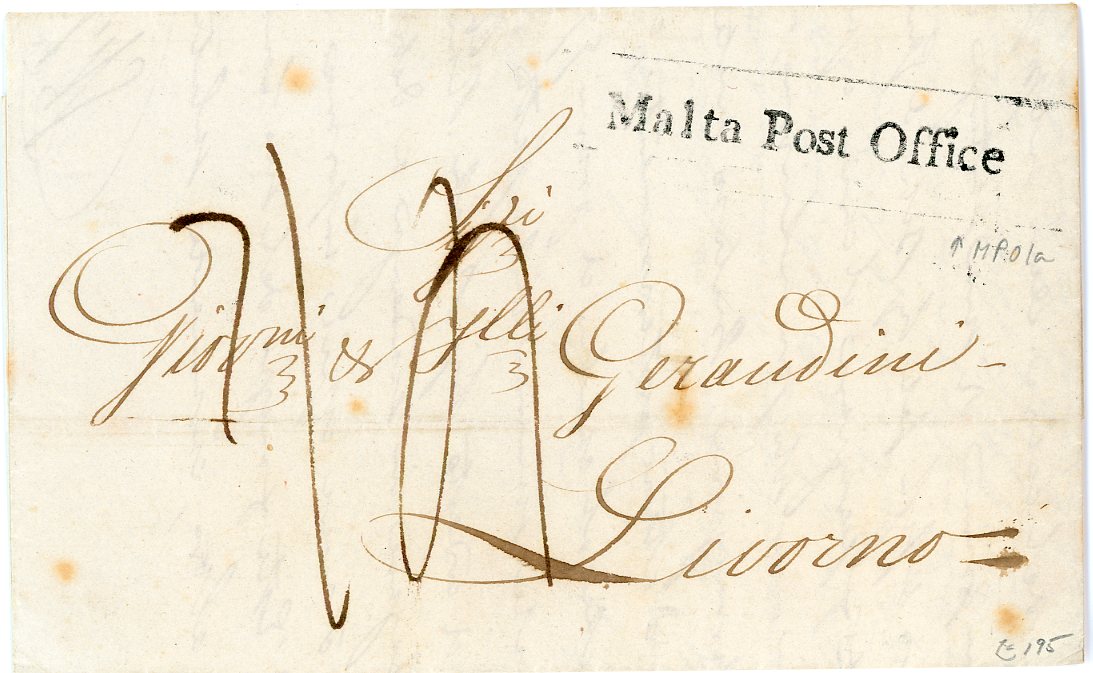 Malta Post Office
↑ MP01a
Sigri
Giovni & Flli Geraudini -
Livorno =
£ 195